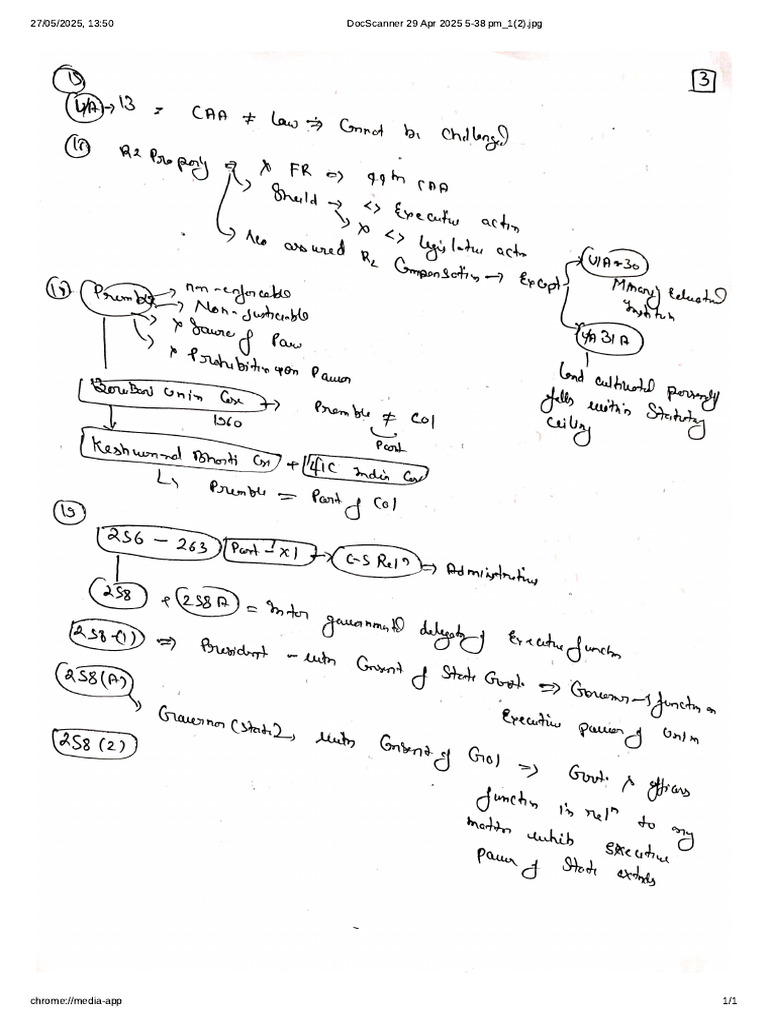 27/05/2025, 13:50 DocScanner 29 Apr 2025 5-38 pm_1(2).jpg
3
U/A → 13 = CAA ≠ Law ⇒ Cannot be Challenged
R2 Property → × FR ⇒ 44th CAA
Shield → <> Executive action
× <> legislative actn
No assured R2 Compensation → Except
U/A → 30
Minority Educational
Institun
U/A 31A
Land cultivated personally
falls within Statutory
Ceiling
(18) Preamble → non-enforceable
Non-Justiciable
× Source of Power
× Prohibition upon Power
BeruBari Union Case → Preamble ≠ COI
1960
Part
Keshwanand Bharti Cse + LIC India Case
Preamble = Part of COI
(19)
256 – 263 Part – XI → C-S Reln ⇒ Administrative
258 + 258A = Inter governmental delegatn of Executive functn
258-(1) ⇒ President – with Consent of State Govt. ⇒ Governor → functn on
Executive power of Union
258(A)
Governor (State), with Consent of GOI ⇒ Govt. × officers
258 (2)
functn in reln to any
matter which Executive
power of State extends
chrome://media-app 1/1